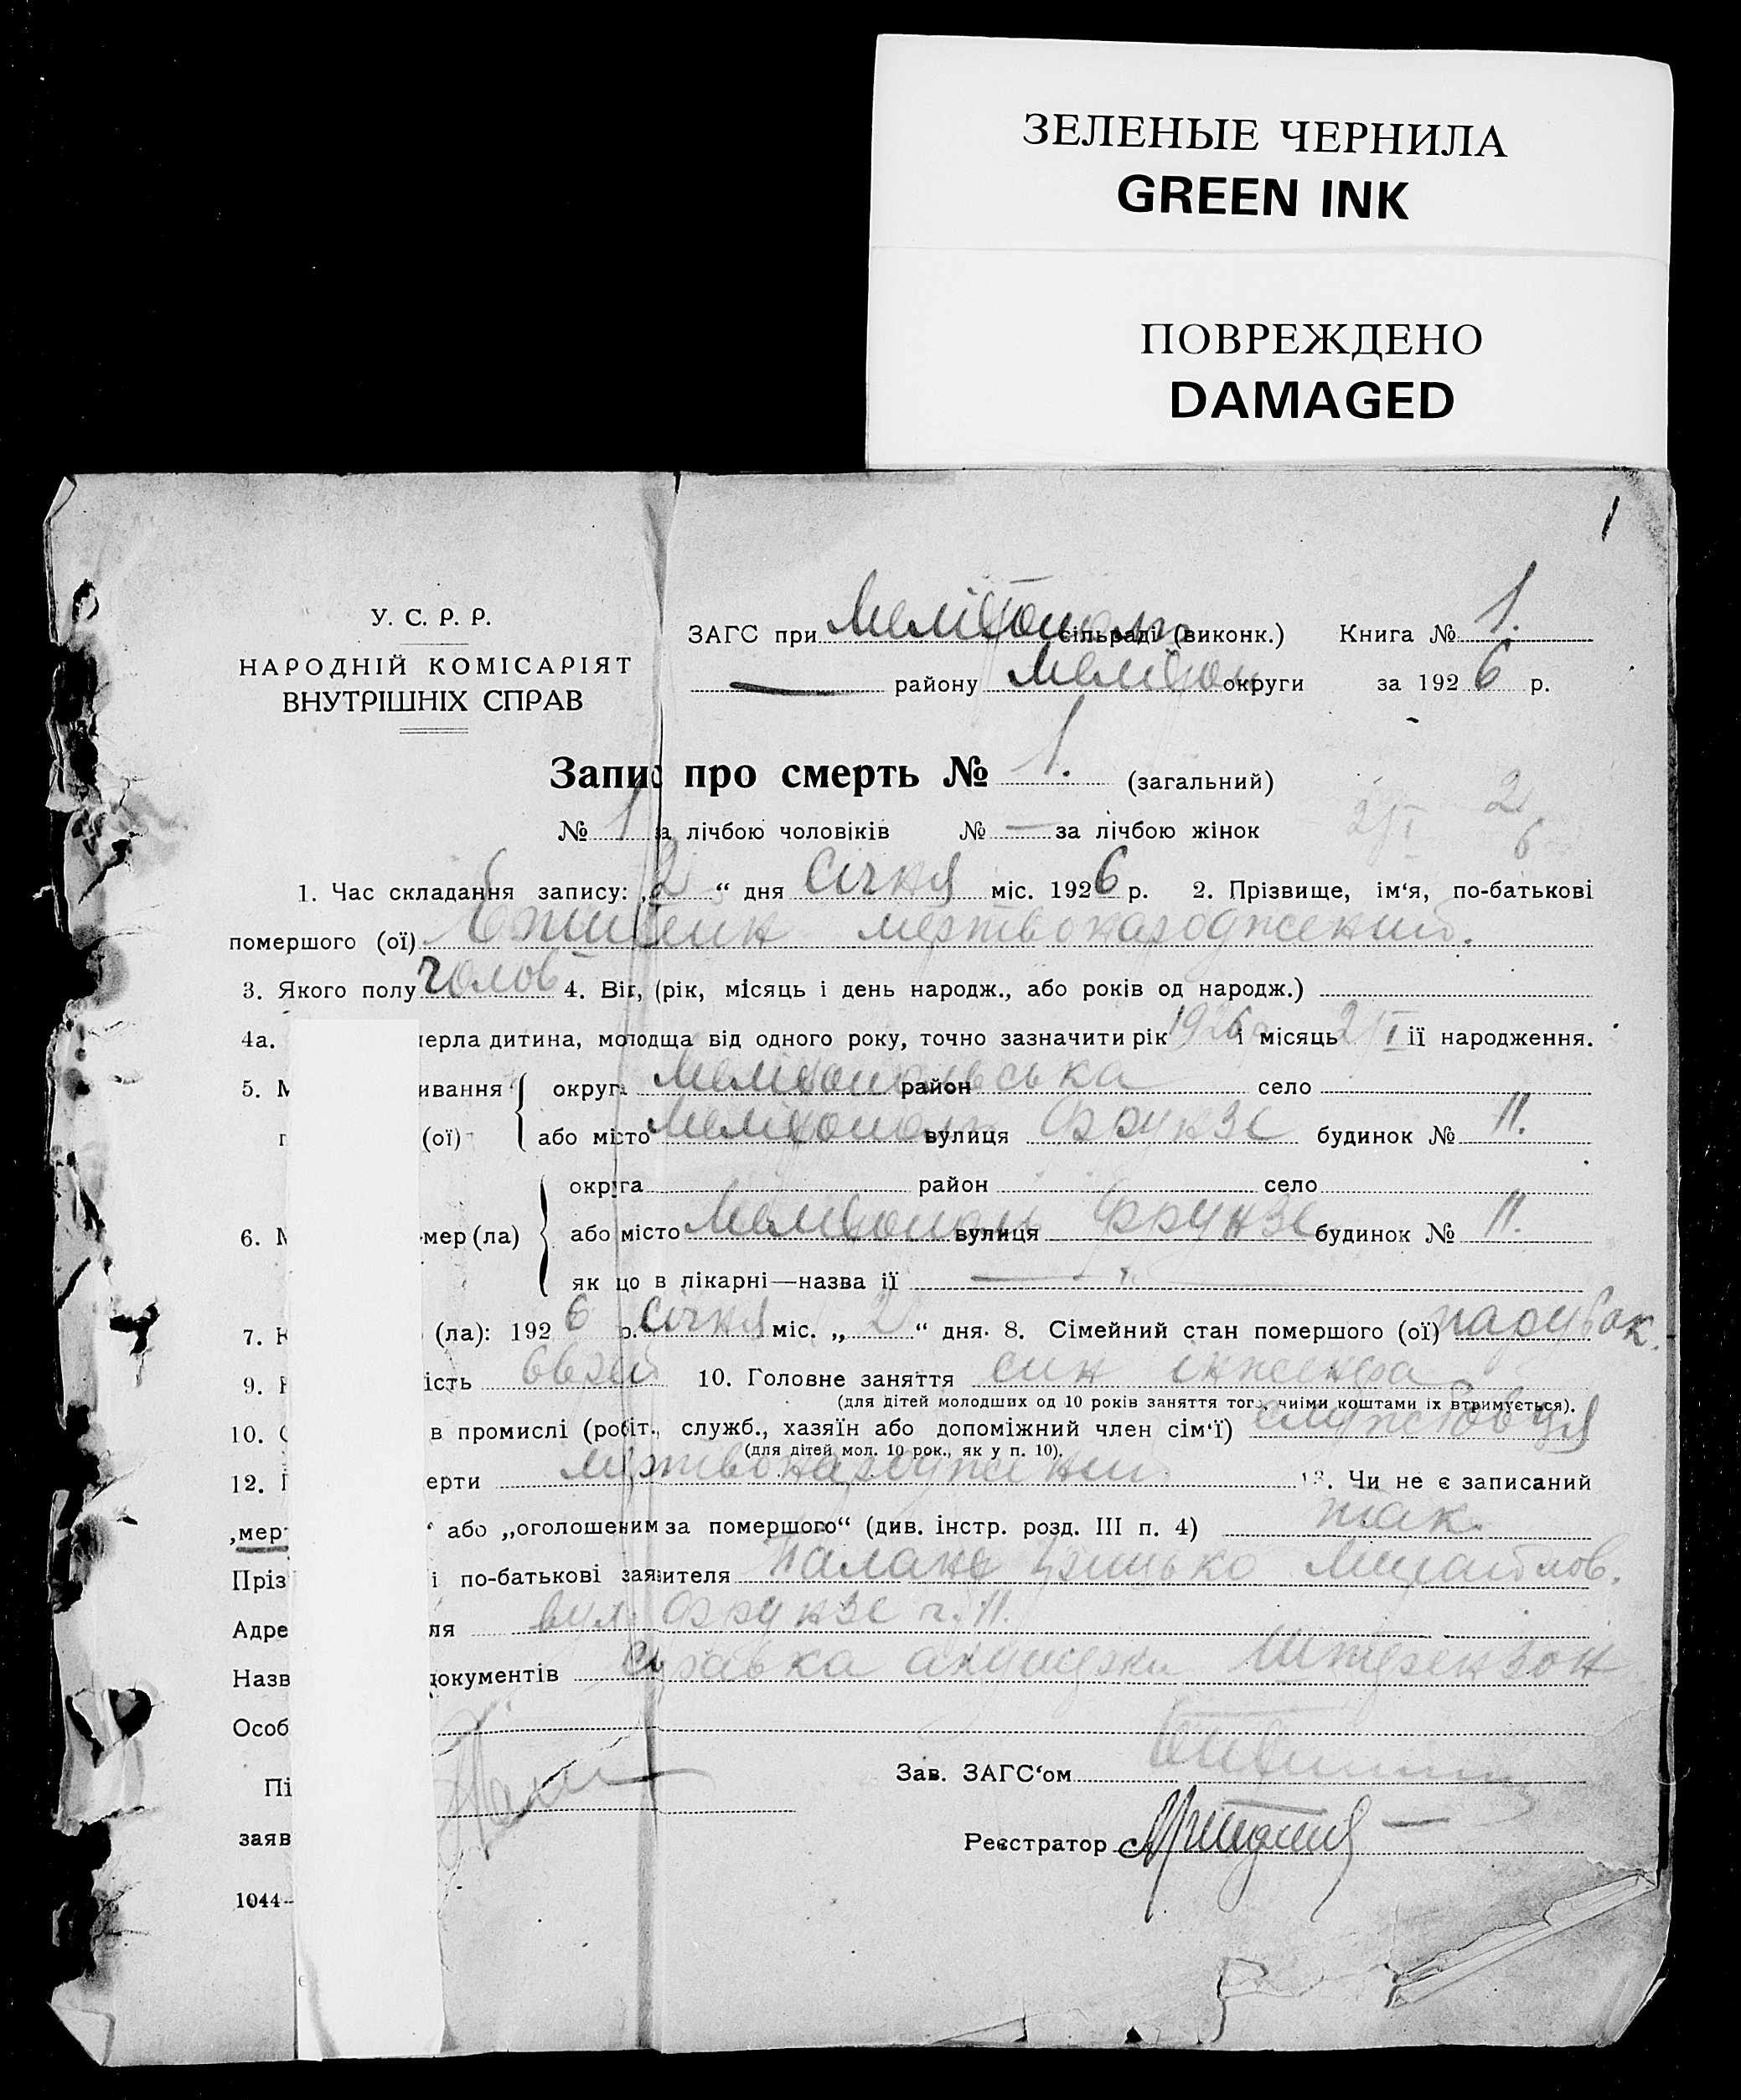 ЗЕЛЕНЫЕ ЧЕРНИЛА
GREEN INK
ПОВРЕЖДЕНО
DAMAGED
1
У. С. Р. Р.
НАРОДНІЙ КОМІСАРІЯТ
ВНУТРІШНІХ СПРАВ
ЗАГС при Мелітополь сільраді (виконк.) Книга № 1.
— району Мелітоп округи за 1926 р.
Запис про смерть № 1. (загальний)
№ 1 за лічбою чоловіків № — за лічбою жінок
1. Час складання запису: „2“ дня Січня міс. 1926 р. 2. Прізвище, ім‘я, по-батькові
помершого (ої) мертвонароджений.
3. Якого полу Чолов 4. Вік, (рік, місяць і день народж., або років од народж.)
4а. мерла дитина, молодща від одного року, точно зазначити рік 1926 і місяць 2/I її народження.
5. М ивання округа Мелітопольська район село
п (ої) або місто Мелітополь вулиця Фрунзе будинок № 11.
округа район село
6. М мер (ла) або місто Мелітополь вулиця Фрунзе будинок № 11.
як що в лікарні—назва її —
7. К (ла): 1926 р. Січня міс. „2“ дня. 8. Сімейний стан помершого (ої) парубок.
9. Н ість єврей 10. Головне заняття син інженера
(для дітей молодших од 10 років заняття того, чиїми коштами їх втримується).
10. С в промислі (робіт., служб., хазяїн або допоміжний член сім‘ї) службовця
(для дітей мол. 10 рок., як у п. 10).
12. П ерти мертвонароджений 13. Чи не є записаний
„мер “ або „оголошеним за помершого“ (див. інстр. розд. III п. 4) так.
Пріз і по-батькові заявителя Грицько Михайлов.
Адре ля вул. Фрунзе ч. 11.
Назв документів Справка акушерки Штерензон
Особ
Пі
Зав. ЗАГС‘ом
заяв
Реєстратор
1044-